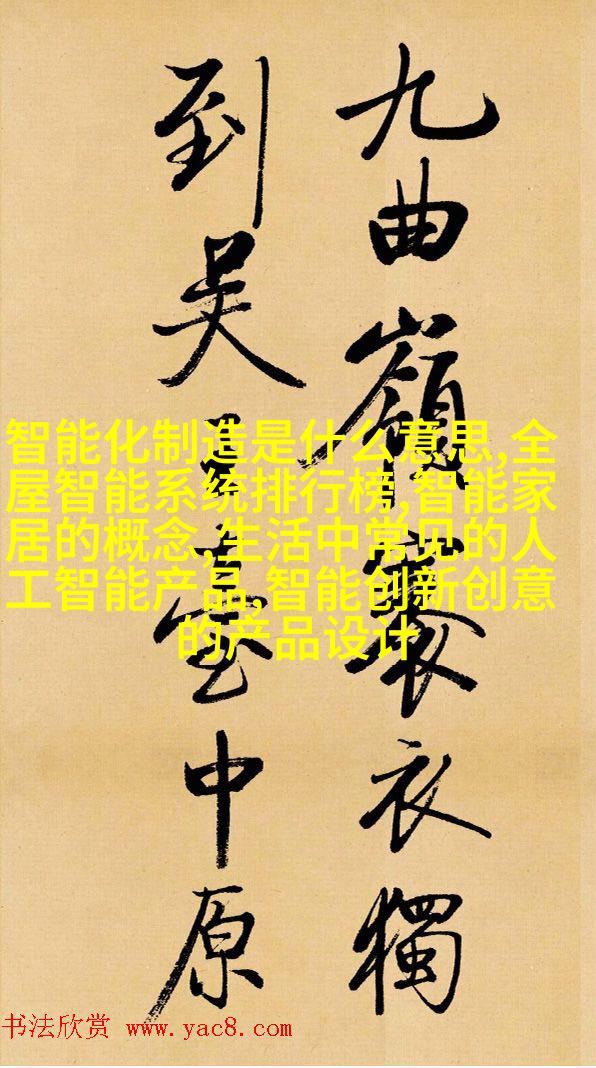 九曲嶺褰衣獨
到吴王臺中原
智能化制造是什么意思,全
屋智能系统排行榜,智能家
居的概念,生活中常见的人
工智能产品,智能创新创意
的产品设计
书法欣赏 www.yac8.com